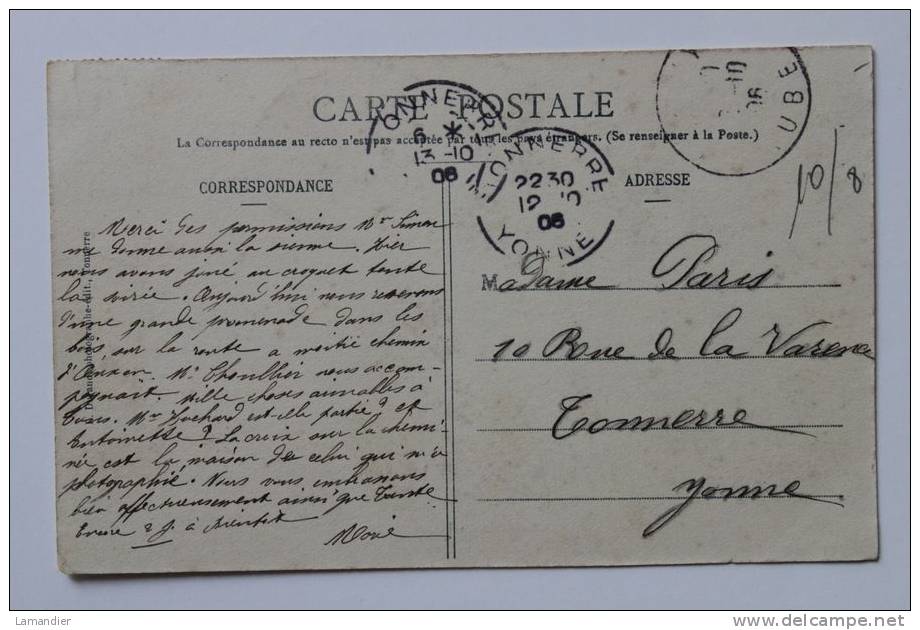 CARTE POSTALE
La Correspondance au recto n'est pas acceptée par tous les pays étrangers. (Se renseigner à la Poste.)
CORRESPONDANCE
ADRESSE
TONNERRE
6 *
13 -10
06
TONNERRE
22 30
12
06
YONNE
10
06
UBE
10/8
Merci des permissions Mr Simon
me donne aussi la sienne. Hier
nous avons joué au croquet toute
la soirée. Aujourd'hui nous revenons
d'une grande promenade dans les
bois, sur la route a moitié chemin
Mr Thoullier nous accom-
pagnait. Mille choses aimables à
tous. Mme est-elle partie? et
Antoinette? La croix sur la chemi-
née est la maison de celui qui m'a
photographié. Nous vous embrassons
bien affectueusement ainsi que Tante
à bientôt
Madame Paris
10 Rue de la Varence
Tonnerre
Yonne
photographe-édit., Tonnerre
Lamandier
delcampe.net